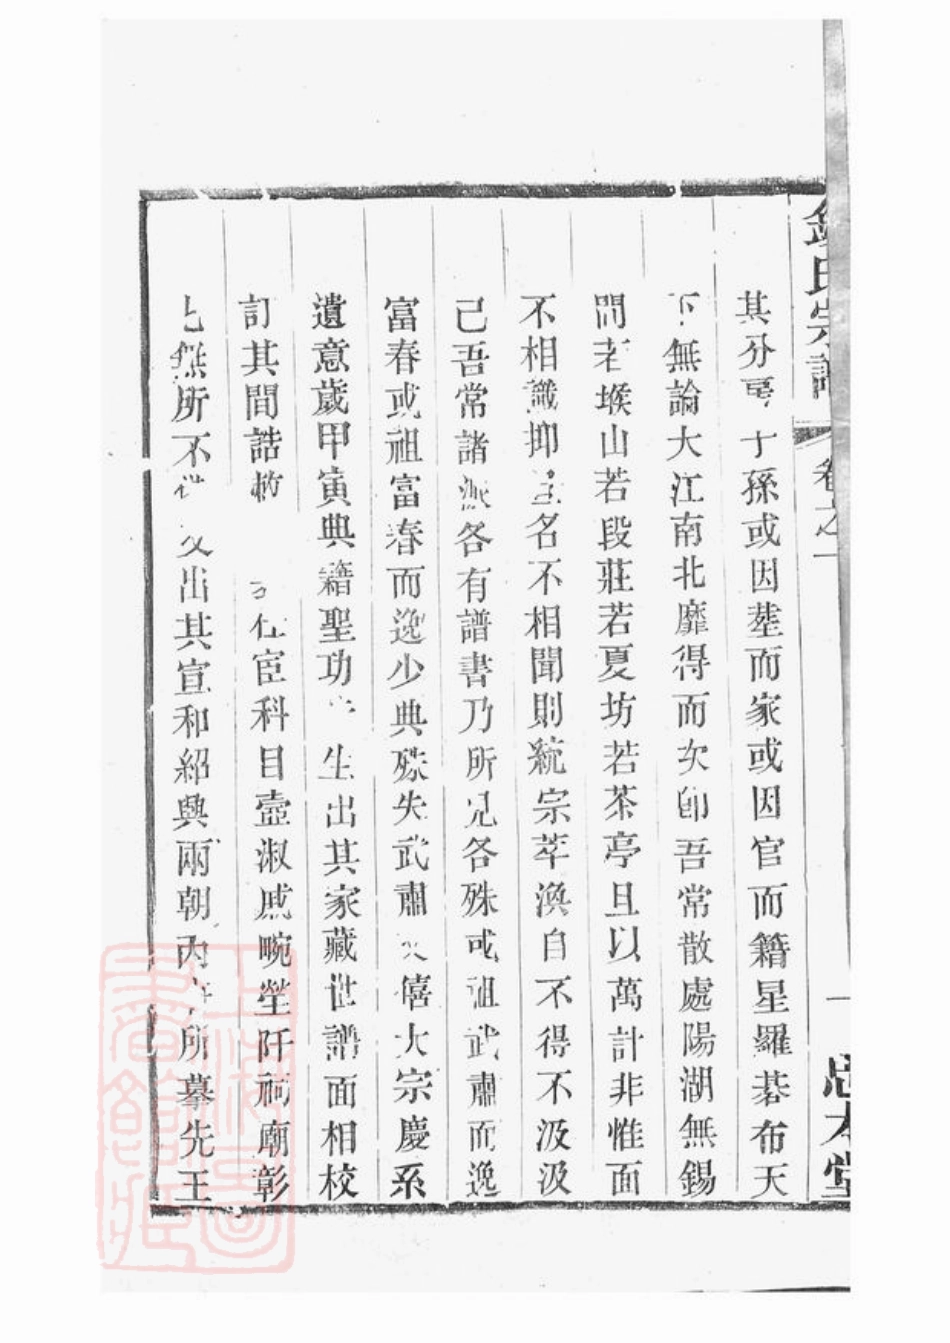 氏宗譜 卷之一 一 忠本堂
其分 子孫或因塟而家或因官而籍星羅碁布天
下無論大江南北靡得而次即吾常散處陽湖無錫
間若堠山若段莊若夏坊若茶亭且以萬計非惟面
不相識抑且名不相聞則統宗萃渙自不得不汲汲
已吾常諸派各有譜書乃所見各殊或祖武肅而逸
富春或祖富春而逸少典殊失武肅 僖大宗慶系
遺意歲甲寅典籍聖功 生出其家藏世譜面相校
訂其間誥敕 仕宦科目壼淑戚畹塋阡祠廟彰
無所不 又出其宣和紹興兩朝内 所摹先王